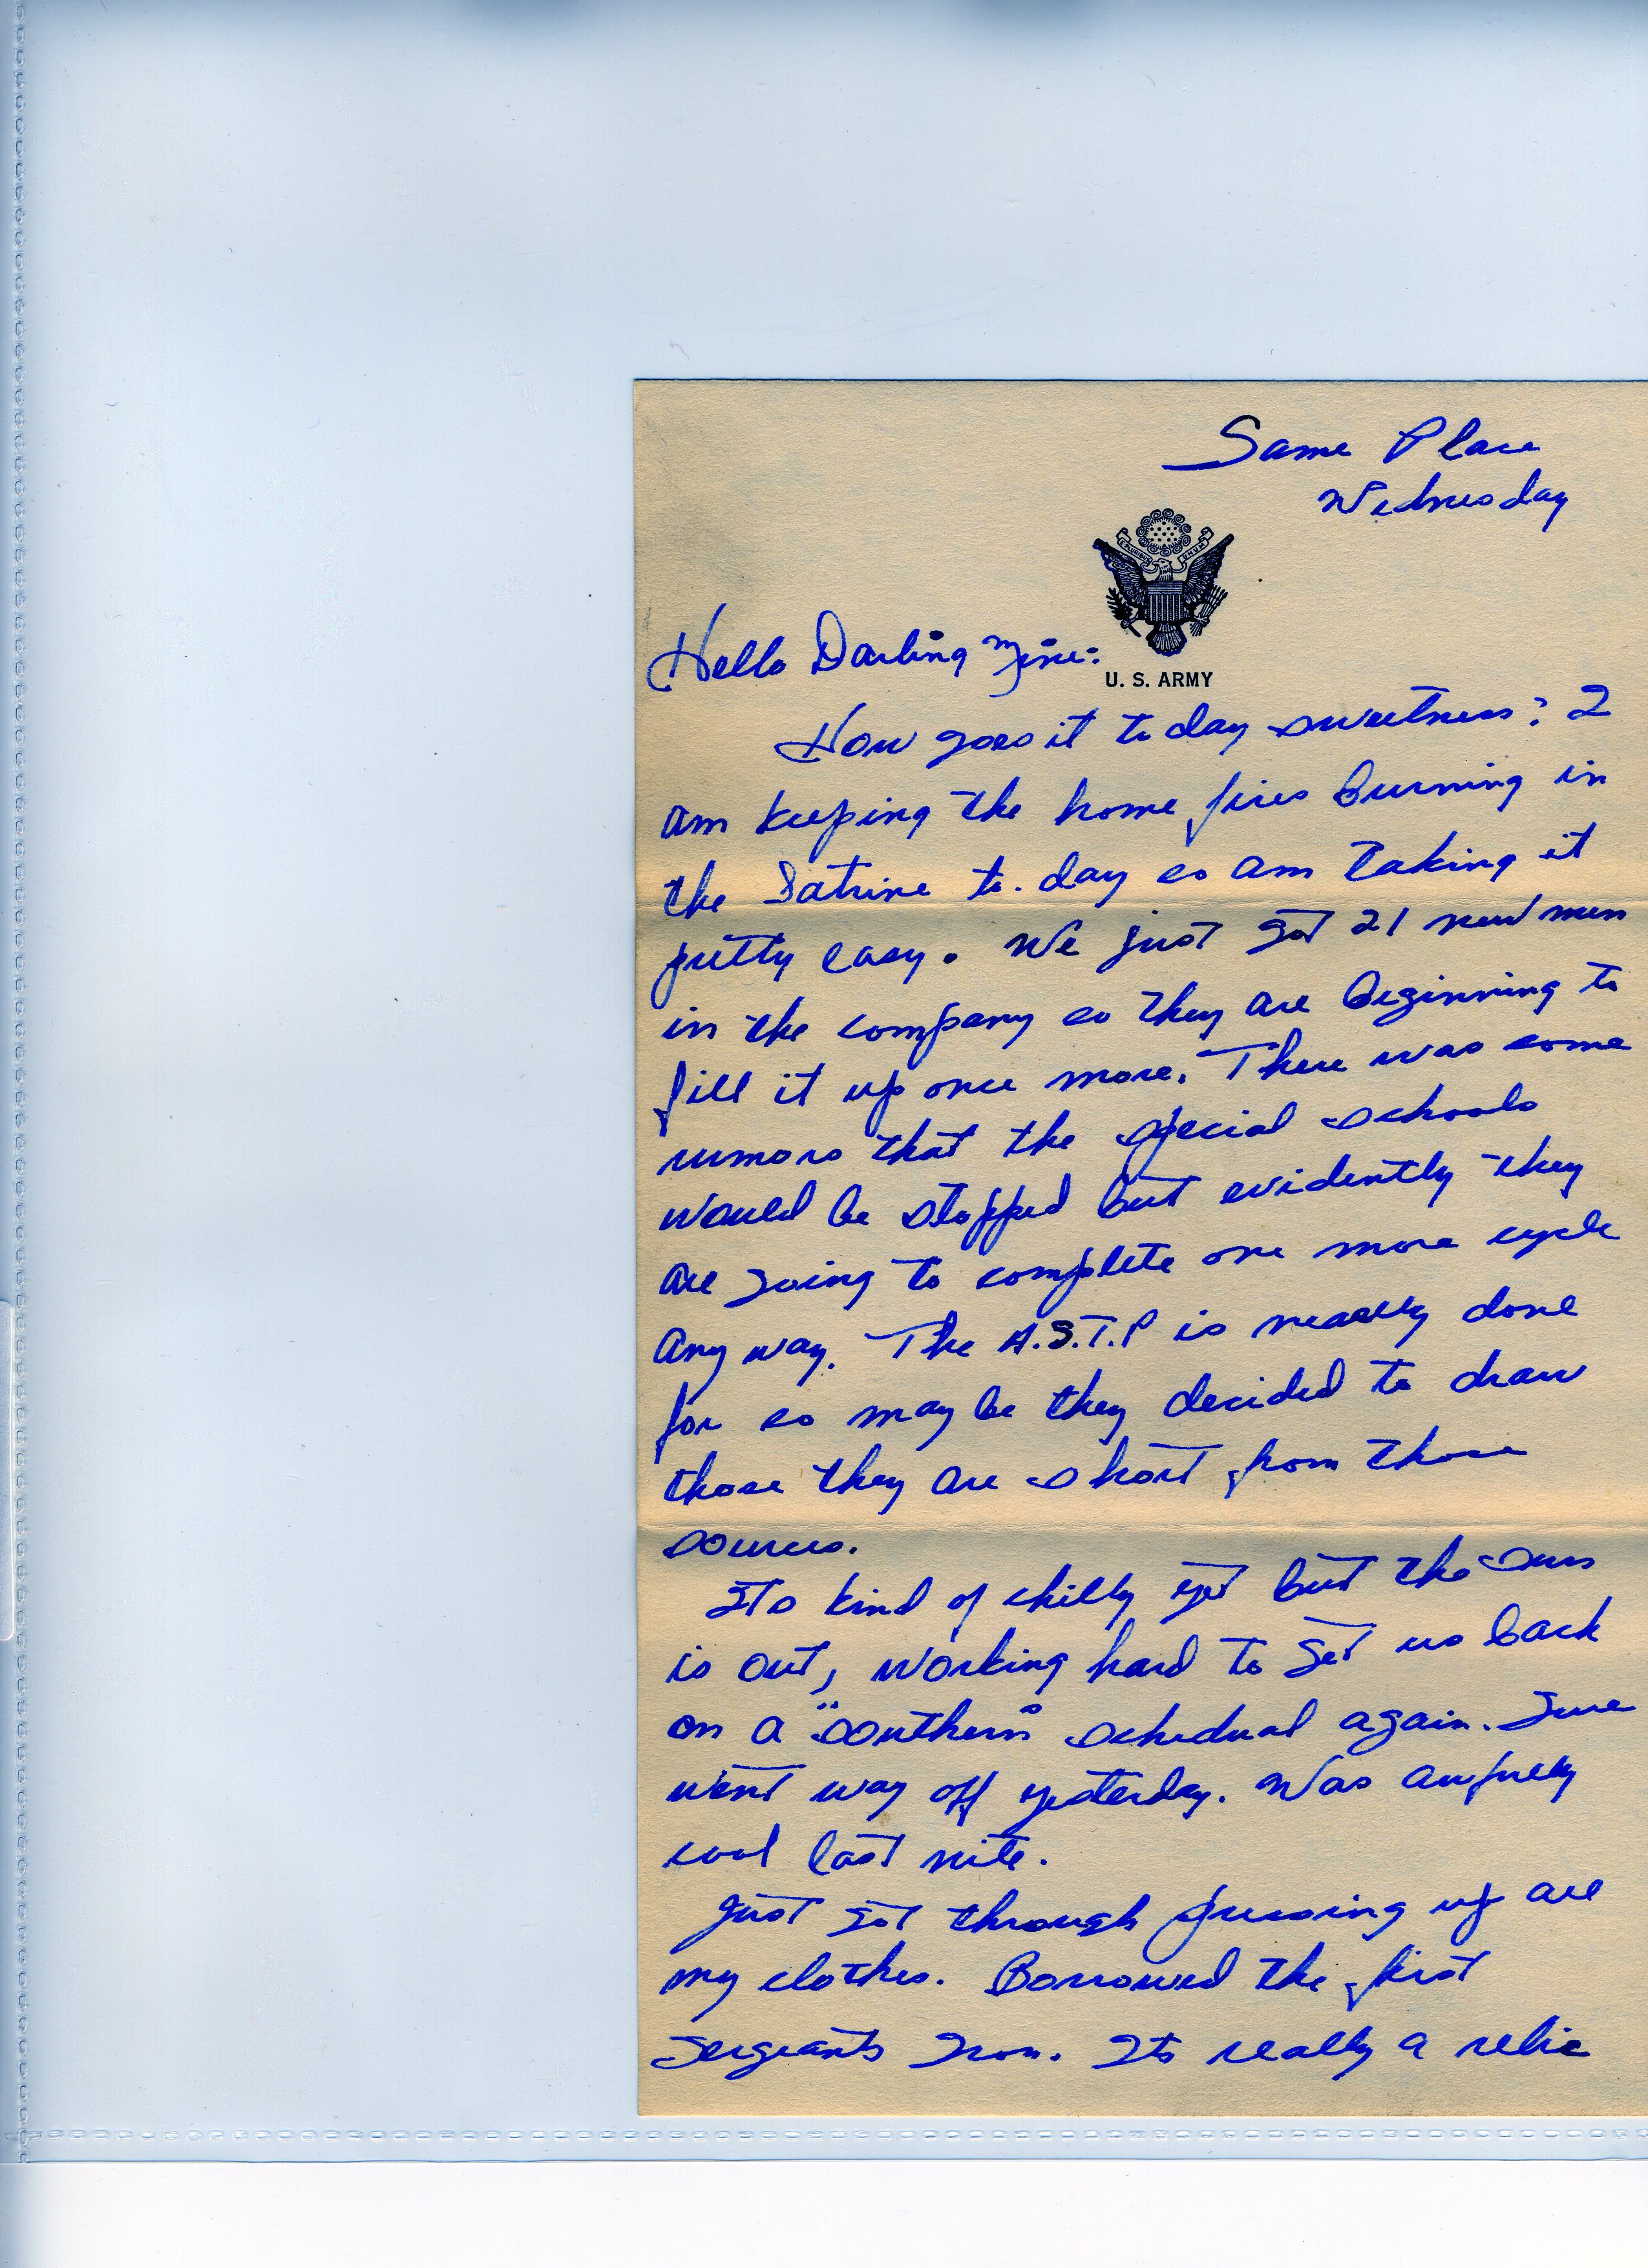 Same Place
Wednesday
E PLURIBUS UNUM
Hello Darling Mine:
U. S. ARMY
How goes it to day sweetness? I
am keeping the home fires burning in
the Latrine to-day so am taking it
pretty easy. We just got 21 new men
in the company so they are beginning to
fill it up once more. There was some
rumors that the special schools
would be stopped but evidently they
are going to complete one more cycle
any way. The A.S.T.P is really done
for so may be they decided to draw
those they are short from those
sources.
Its kind of chilly yet but the sun
is out, working hard to get us back
on a "southern" schedual again. Sure
went way off yesterday. Was awfully
cool last nite.
Just got through pressing up all
my clothes. Borrowed the first
Sergeants Iron. Its really a relic